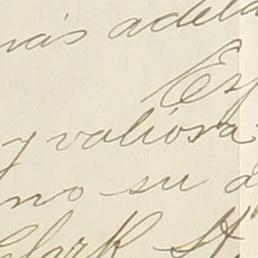 más adela
Es
y valiosa
no su a
Clark St.